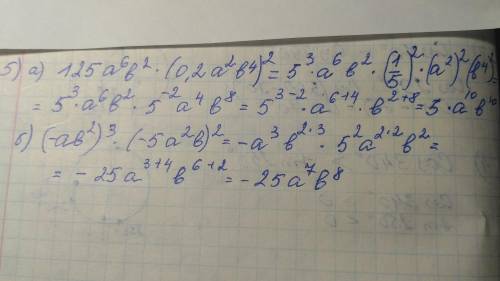 5) а) 125a⁶b² · (0,2a²b⁴)² = 5³·a⁶b²·(1/5)²·(a²)²(b⁴)²
= 5³·a⁶b²·5⁻²a⁴b⁸ = 5³⁻²·a⁶⁺⁴·b²⁺⁸ = 5·a¹⁰b¹⁰
б) (-ab²)³ · (-5a²b)² = -a³b²·³·5²a²·²b² =
= -25a³⁺⁴b⁶⁺² = -25a⁷b⁸